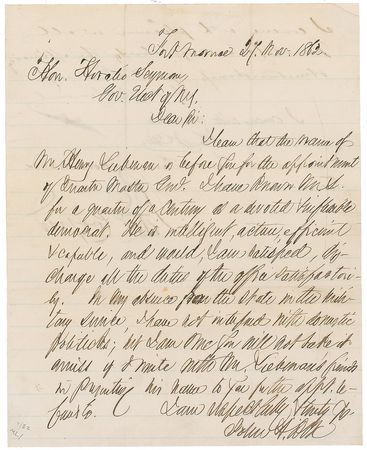 Fort Monroe 27. Nov. 1862
Hon. Horatio Seymour,
Gov. Elect of N.Y.
Dear Sir:
I learn that the name of
Mr. Henry Liebman is before you for the appointment
of Quarter Master Genl. I have known Mr. L.
for a quarter of a century as a devoted &
democrat. He is intelligent, active, efficient
& capable, and would, I am satisfied, dis-
charge all the duties of the office satisfactori-
ly. In my absence from the State in the mili-
tary service, I have not interfered with domestic
politics; but I am sure you will not take it
amiss if I unite with Mr. Liebman's friends
in presenting his name to you for the appt. re-
ferred to. I am respectfully & truly yrs
John A. Dix